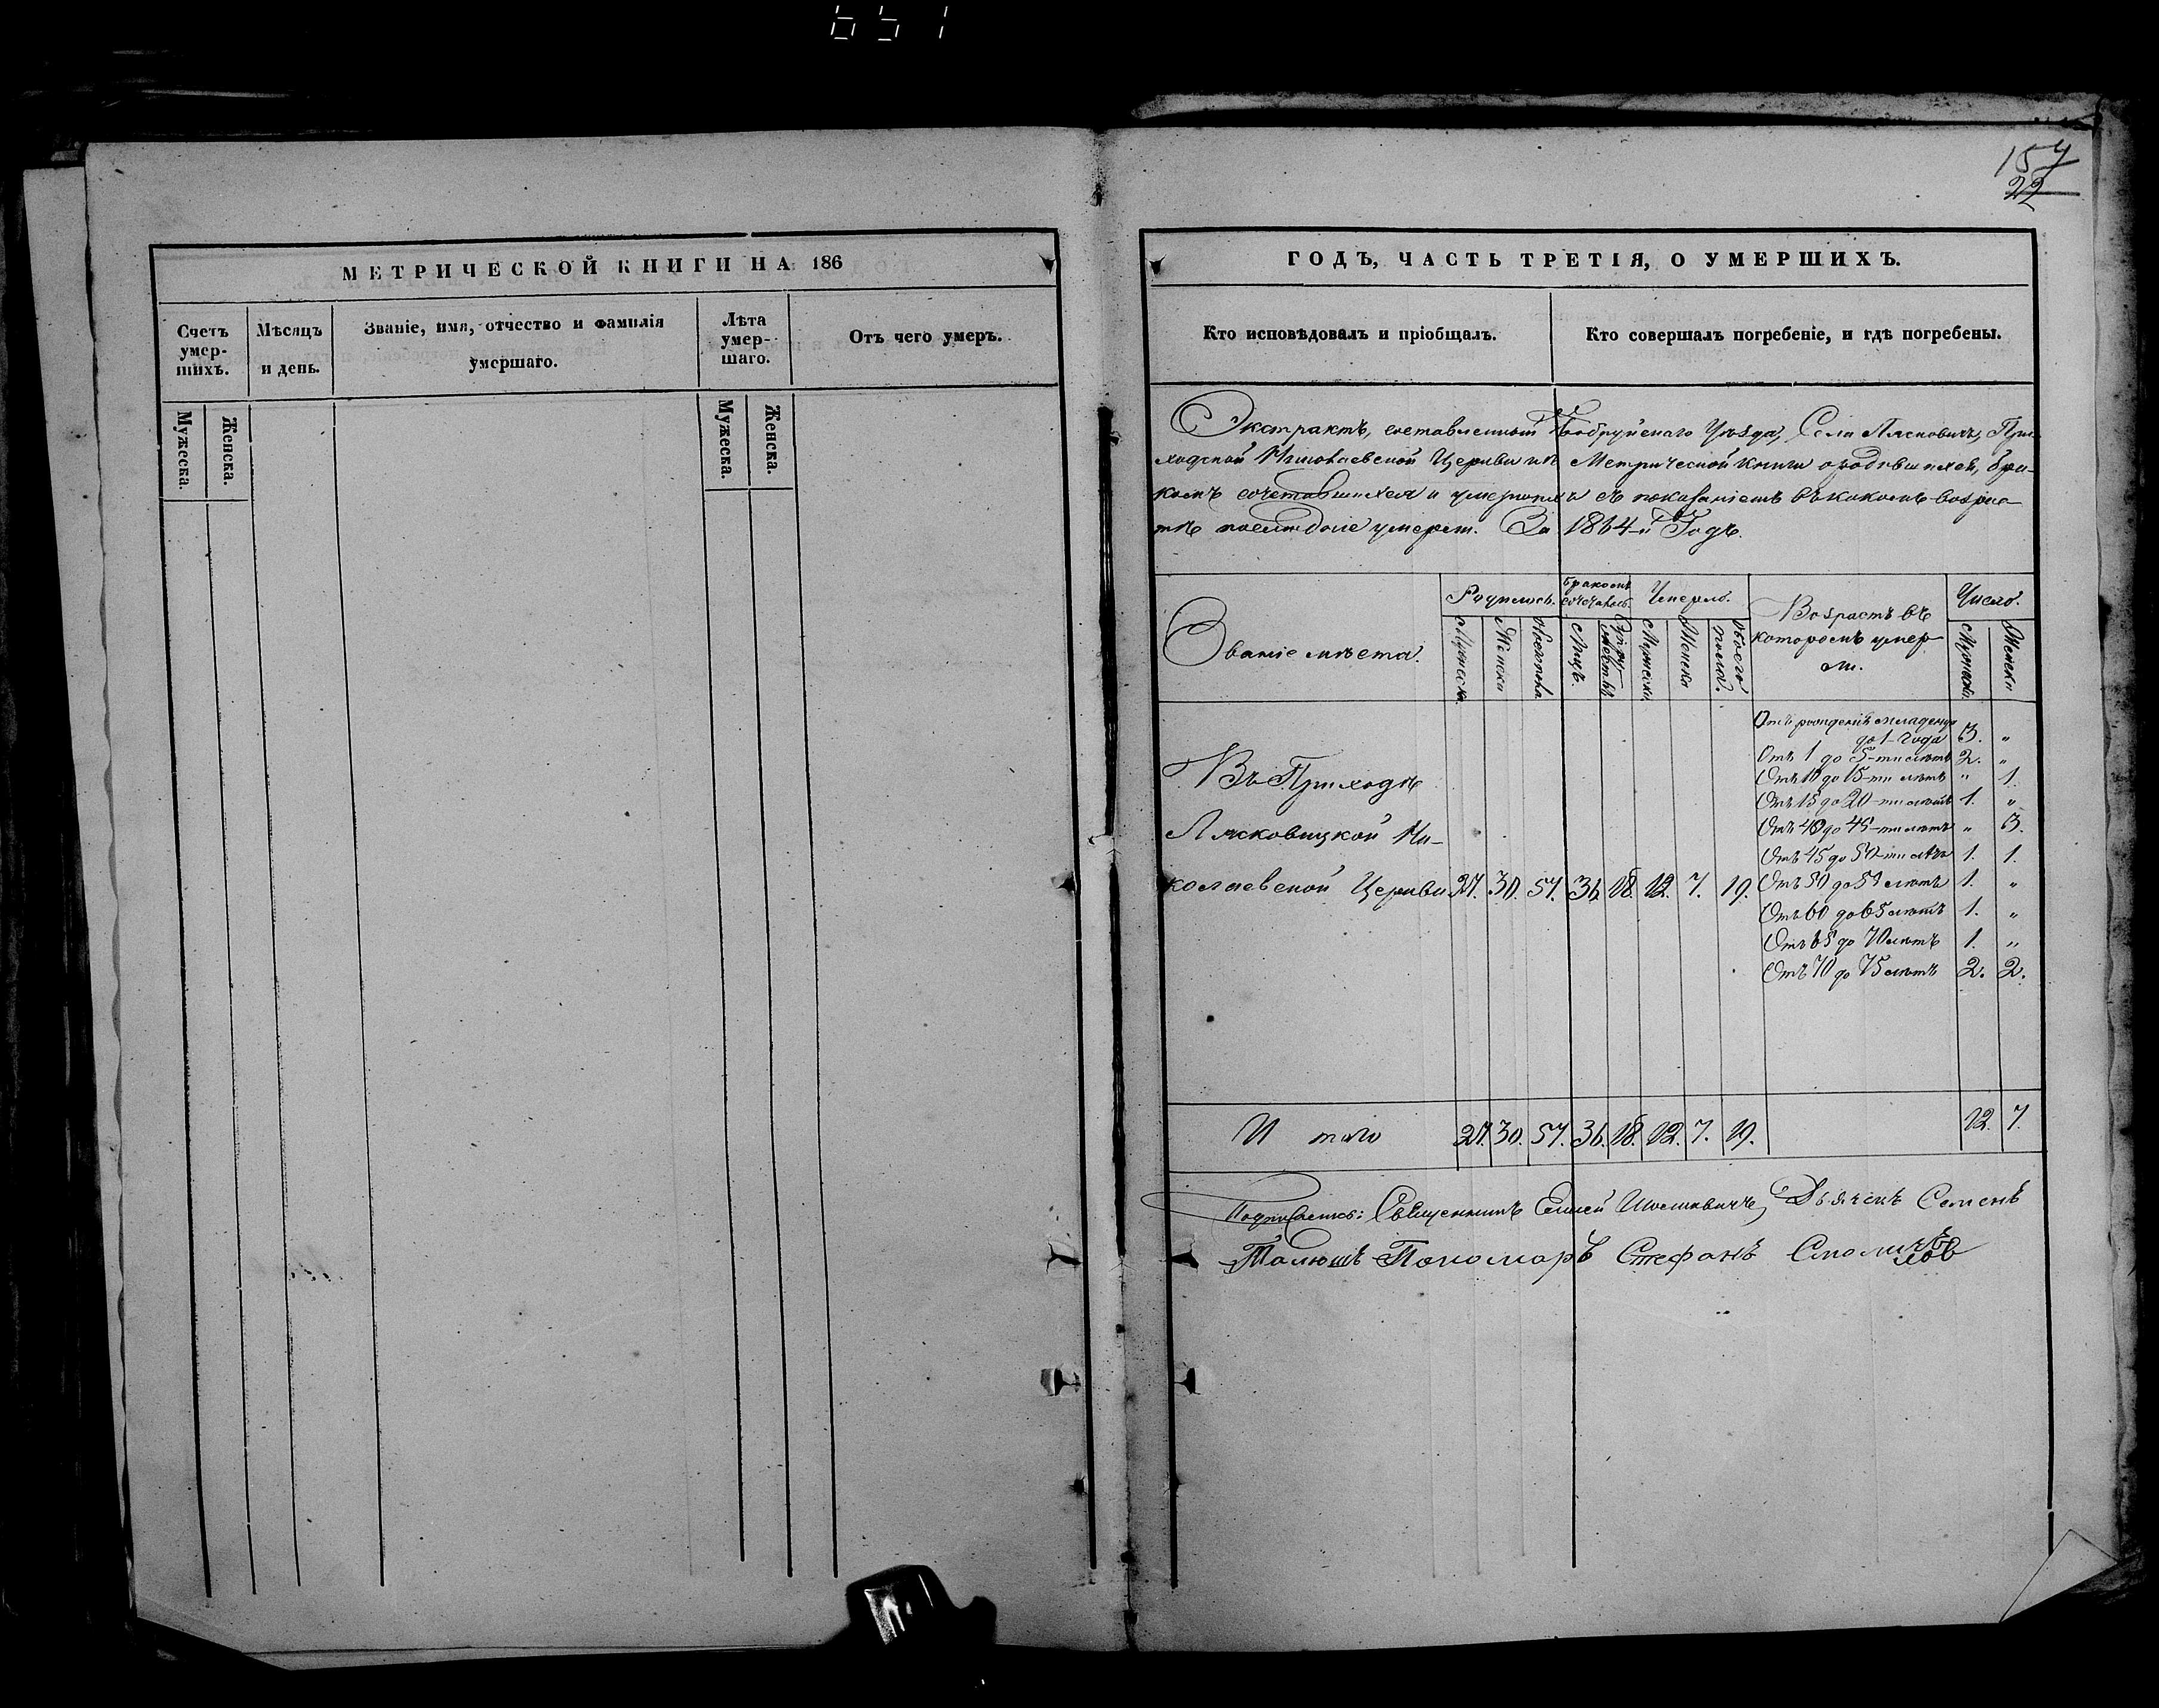 651
157
22
МЕТРИЧЕСКОЙ КНИГИ НА 186
Счетъ умер-шихъ.
Мѣсяцъ и день.
Званіе, имя, отчество и фамилія умершаго.
Лѣта умер-шаго.
Отъ чего умеръ.
Мужеска.
Женска.
Мужеска.
Женска.
ГОДЪ, ЧАСТЬ ТРЕТІЯ, О УМЕРШИХЪ.
Кто исповѣдовалъ и пріобщалъ.
Кто совершалъ погребеніе, и гдѣ погребены.
Экстрактъ, составленный Бобруйскаго Уѣзда, Села Лясковичъ, При-
ходской Николаевской Церкви изъ Метрической книги о родившихся, бра-
комъ сочетавшихся и умершихъ съ показаніемъ въ какомъ возра-
стѣ померли. За 1864-й Годъ.
Званіе мѣста.
Родилось.
Мужеска.
Женска
Обоего пола
Бракомъ сочеталось.
Лицъ.
Умерло.
Мужеска
Женска
Обоего пола.
Возрастъ въ
которомъ умер-
ли.
Число.
Мужеска.
Женска
Отъ рожденія младенца
до 1 года 3. „
Отъ 1 до 5-ти лѣтъ 2. „
Отъ 10 до 15-ти лѣтъ „ 1.
Отъ 15 до 20-ти лѣтъ 1. „
Отъ 40 до 45-ти лѣтъ „ 3.
Отъ 45 до 50-ти лѣтъ 1. 1.
Въ Приходѣ
Лясковицкой Ни-
колаевской Церкви 27. 30. 57. 36. 18. 12. 7. 19. Отъ 50 до 5 лѣтъ 1. „
Отъ 60 до 65 лѣтъ 1. „
Отъ 65 до 70 лѣтъ 1. „
Отъ 70 до 75 лѣтъ 2. 2.
И того 27. 30. 57. 36. 18. 12. 7. 19. 12. 7.
Подписались: Священникъ Дьячекъ Семенъ
Пономарь Стефанъ